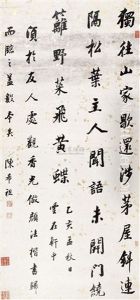 獨往山家歇還涉茅屋斜連
隔松葉主人聞語未開門繞
籬野菜飛黃蝶 乙亥孟秋日雪在軒中
頃於友人處觀香光倣顏法楷書歸
而臨之蓋數本矣 陳希祖